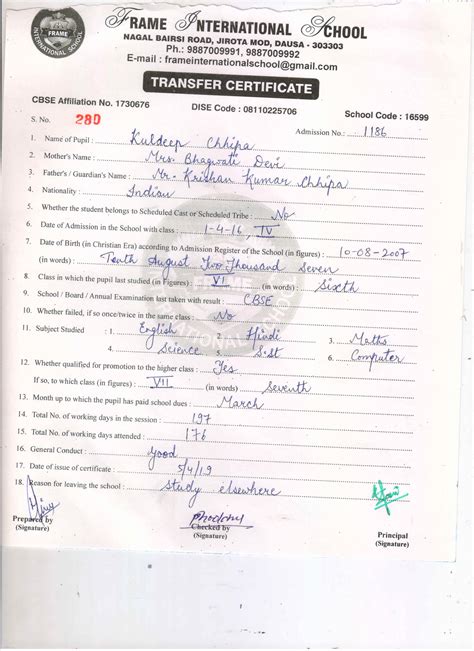 FRAME INTERNATIONAL SCHOOL
NAGAL BAIRSI ROAD, JIROTA MOD, DAUSA - 303303
Ph.: 9887009991, 9887009992
E-mail : frameinternationalschool@gmail.com
TRANSFER CERTIFICATE
CBSE Affiliation No. 1730676 DISE Code : 08110225706 School Code : 16599
S. No. 280 Admission No.: 1186
1. Name of Pupil : Kuldeep Chhipa
2. Mother's Name : Mrs. Bhagwati Devi
3. Father's / Guardian's Name : Mr. Krishan Kumar Chhipa
4. Nationality : Indian
5. Whether the student belongs to Scheduled Cast or Scheduled Tribe : No
6. Date of Admission in the School with class : 1-4-16, IV
7. Date of Birth (in Christian Era) according to Admission Register of the School (in figures) : 10-08-2007
(in words) : Tenth August Two Thousand Seven
8. Class in which the pupil last studied (in Figures) : VI (in words) : Sixth
9. School / Board / Annual Examination last taken with result : CBSE
10. Whether failed, if so once/twice in the same class : No
11. Subject Studied : 1. English 2. Hindi 3. Maths
4. Science 5. S.St 6. Computer
12. Whether qualified for promotion to the higher class : Yes
If so, to which class (in figures) : VII (in words) : Seventh
13. Month up to which the pupil has paid school dues : March
14. Total No. of working days in the session : 197
15. Total No. of working days attended : 176
16. General Conduct : good
17. Date of issue of certificate : 5/4/19
18. Reason for leaving the school : study elsewhere
Prepared by Checked by Principal
(Signature) (Signature) (Signature)